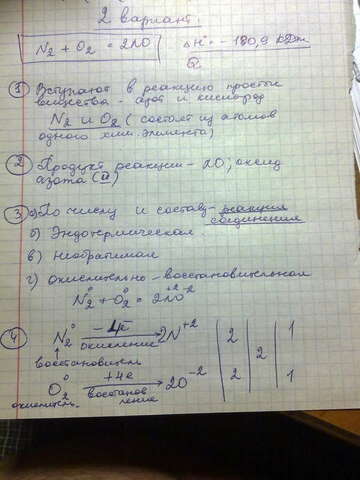 2 вариант.
N₂ + O₂ = 2NO ΔH = - 180,9 кДж
① Вступают в реакцию простые
вещества - азот и кислород
N₂ и O₂ (состоят из атомов
одного хим. элемента)
② Продукт реакции - 2O; оксид
азота (II)
③ а) По числу и составу - реакция
соединения
б) Эндотермическая
в) необратимая
г) окислительно-восстановительная
N₂⁰ + O₂⁰ = 2N⁺²O⁻²
④ N₂⁰ -4е̄ → 2N⁺² | 2 | | 1
окисление
восстановитель | 2 |
O₂⁰ +4е → 2O⁻² | 2 | | 1
окислитель восстанов
ление